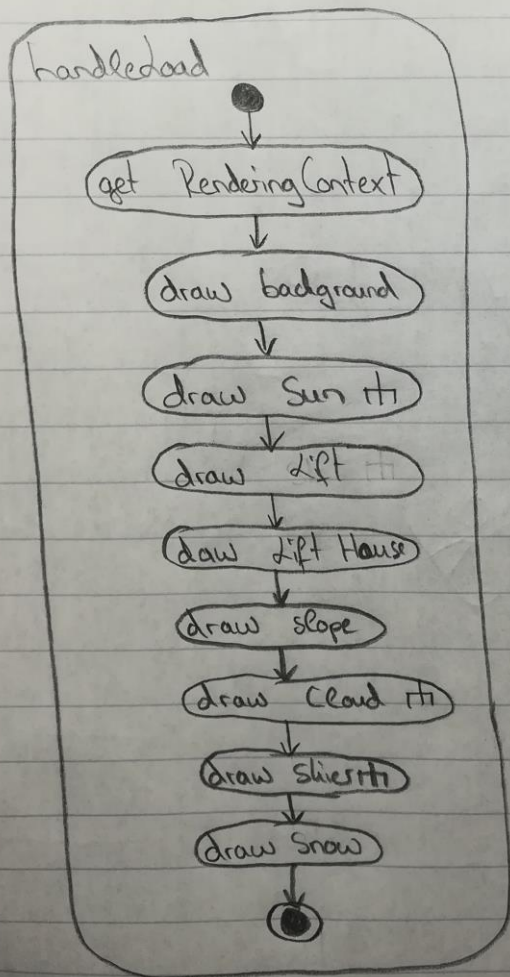 handleLoad
get RenderingContext
draw background
draw Sun
draw Lift
daw Lift House
draw slope
draw Cloud
draw skiers
draw Snow